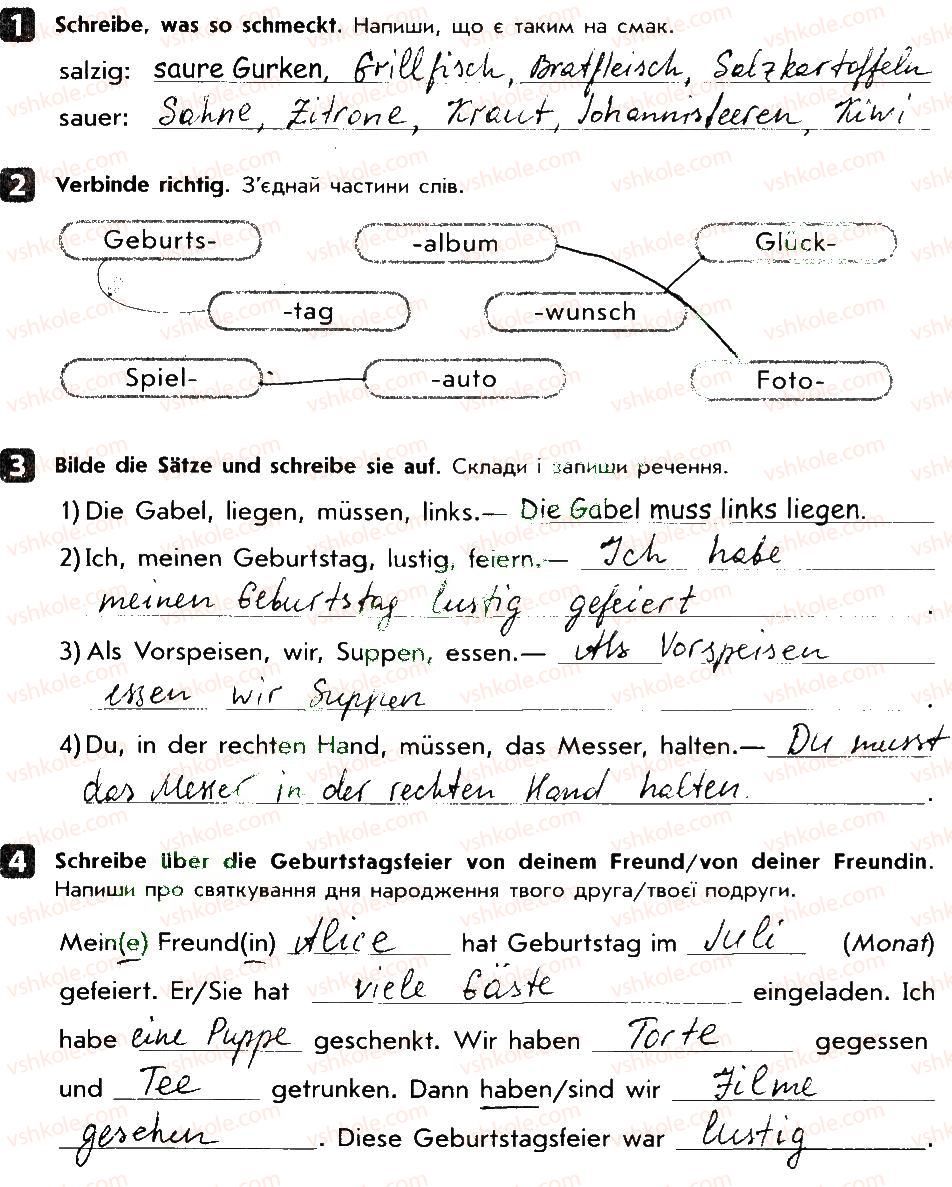 1 Schreibe, was so schmeckt. Напиши, що є таким на смак.
salzig: saure Gurken, Grillfisch, Bratfleisch, Salzkartoffeln
sauer: Sahne, Zitrone, Kraut, Johannisbeeren, Kiwi
2 Verbinde richtig. З'єднай частини слів.
Geburts- -album Glück-
-tag -wunsch
Spiel- -auto Foto-
3 Bilde die Sätze und schreibe sie auf. Склади і запиши речення.
1) Die Gabel, liegen, müssen, links.— Die Gabel muss links liegen.
2) Ich, meinen Geburtstag, lustig, feiern.— Ich habe
meinen Geburtstag lustig gefeiert.
3) Als Vorspeisen, wir, Suppen, essen.— Als Vorspeisen
essen wir Suppen.
4) Du, in der rechten Hand, müssen, das Messer, halten.— Du musst
das Messer in der rechten Hand halten.
4 Schreibe über die Geburtstagsfeier von deinem Freund/von deiner Freundin.
Напиши про святкування дня народження твого друга/твоєї подруги.
Mein(e) Freund(in) Alice hat Geburtstag im Juli (Monat)
gefeiert. Er/Sie hat viele Gäste eingeladen. Ich
habe eine Puppe geschenkt. Wir haben Torte gegessen
und Tee getrunken. Dann haben/sind wir Filme
gesehen. Diese Geburtstagsfeier war lustig.
vshkole.com